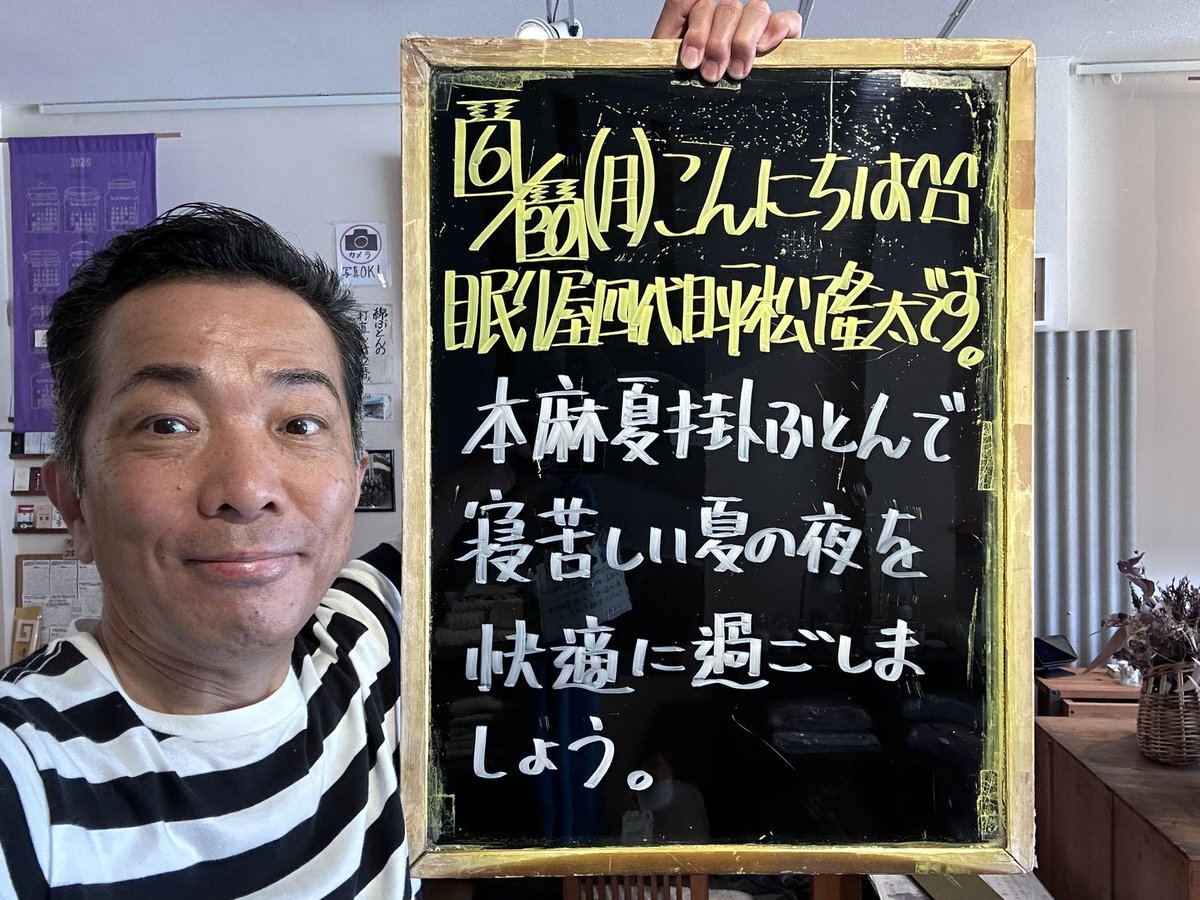 2025
カメラ
写真OK!
綿ふとんの
6/30(月)こんにちは^^
眠り屋四代目平松隆太です。
本麻夏掛ふとんで
寝苦しい夏の夜を
快適に過ごしま
しょう。